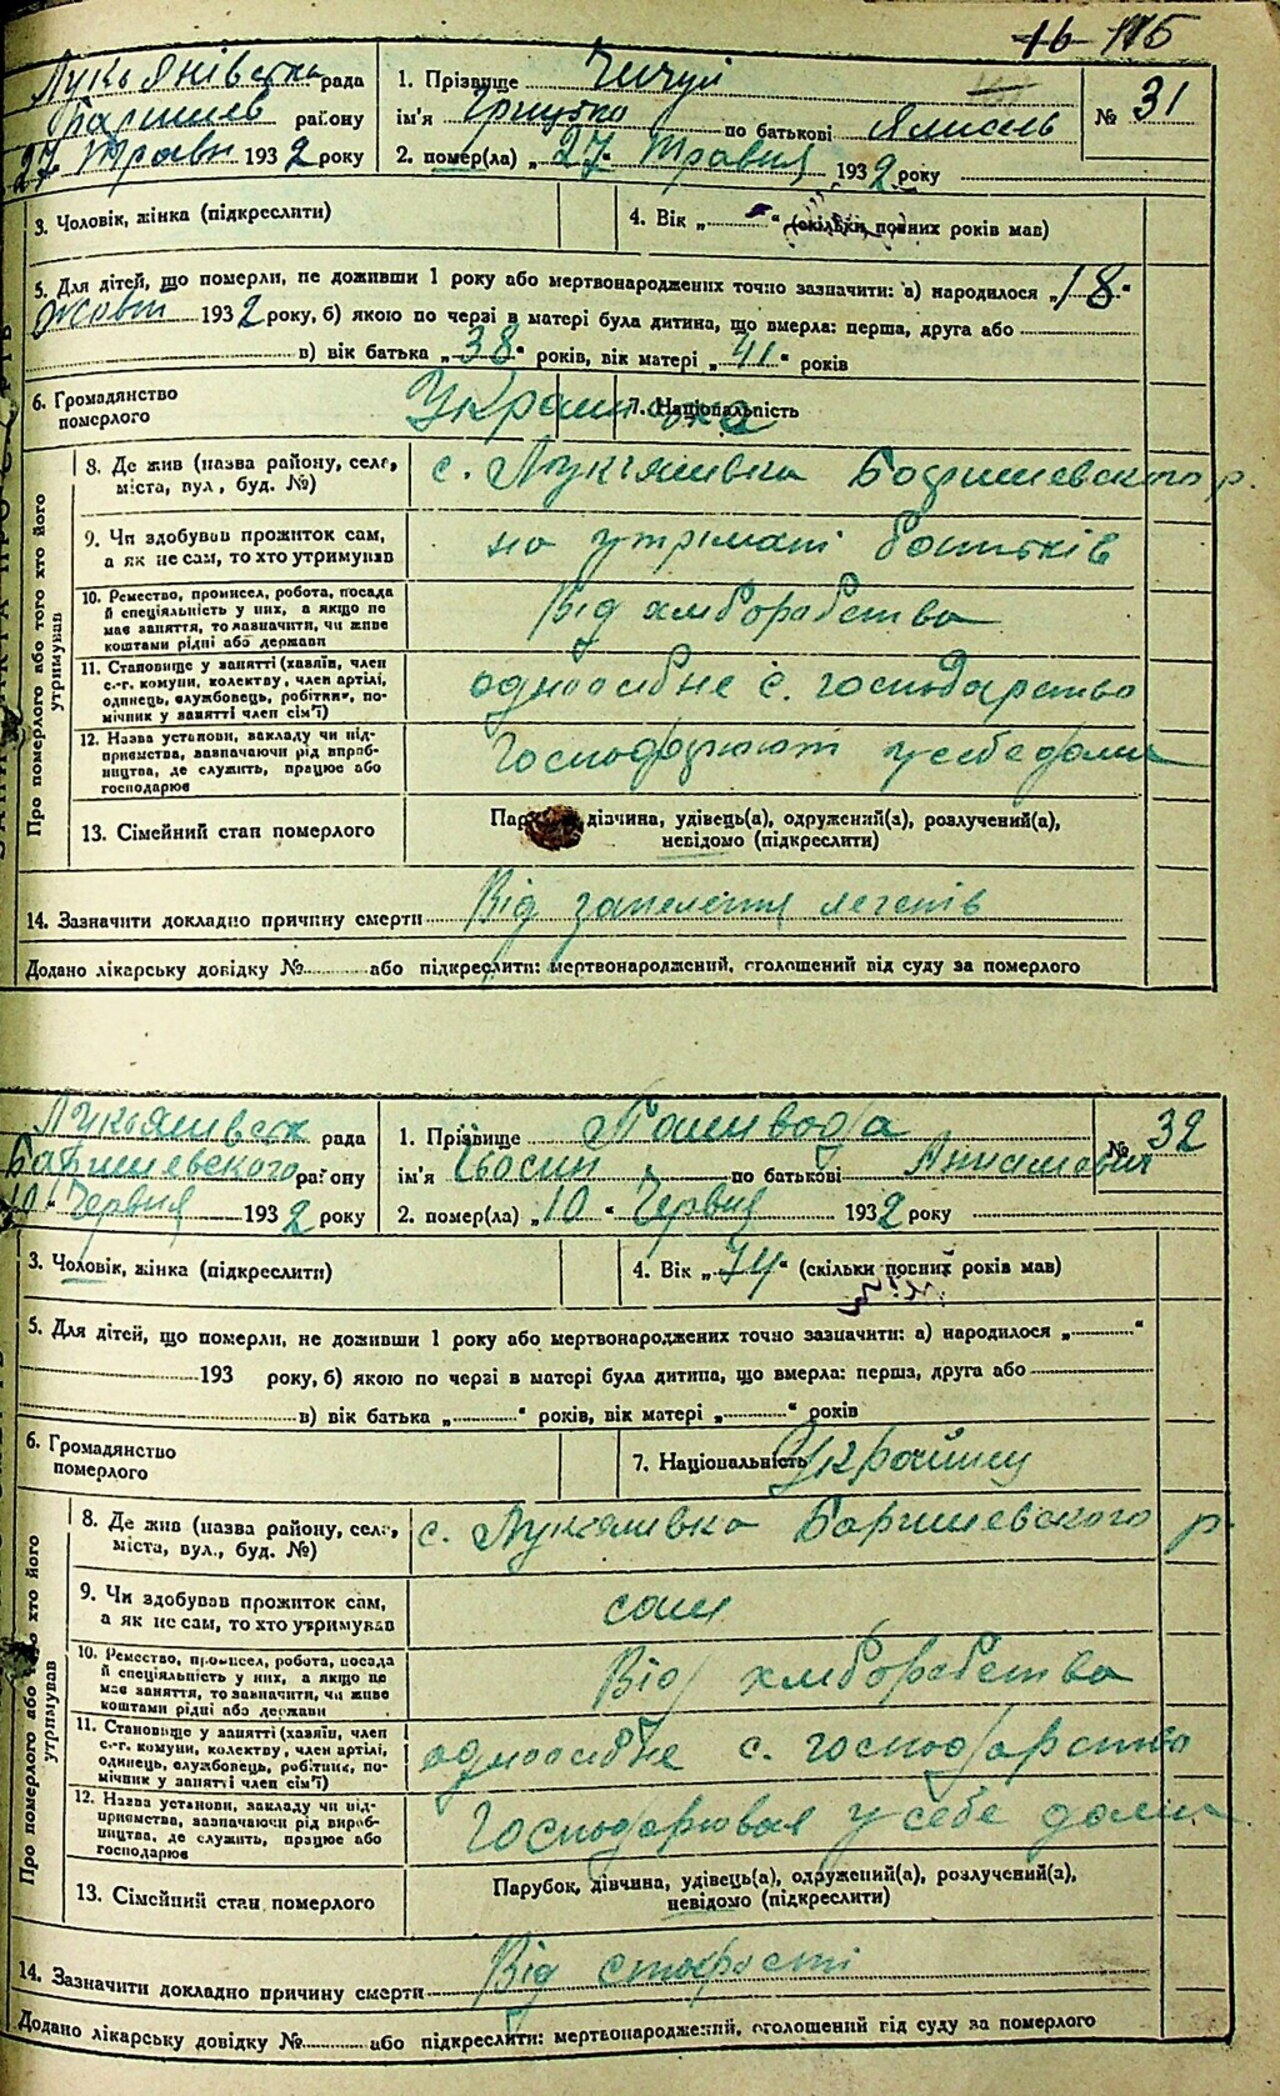 16 115
Лукьянівська рада
Баришев району
27 Травн 1932 року
1. Прізвище Чичул
ім'я Грицько по батькові
№ 31
2. помер(ла) „27" Травня 1932 року
3. Чоловік, жінка (підкреслити)
4. Вік „ " (скільки повних років мав)
5. Для дітей, що померли, не доживши 1 року або мертвонароджених точно зазначити: а) народилося „18"
Жовт 1932 року, б) якою по черзі в матері була дитина, що вмерла: перша, друга або
в) вік батька „38" років, вік матері „41" років
6. Громадянство
померлого
Українка
7. Національність
Про померлого або того хто його
утримував
8. Де жив (назва району, села,
міста, вул., буд. №)
с. Лукьянивка Баришевського р.
9. Чи здобував прожиток сам,
а як не сам, то хто утримував
на утримані батьків
10. Ремество, промисел, робота, посада
й спеціяльність у них, а якщо не
має заняття, то зазначити, чи живе
коштами рідні або держави
Від хліборобства
11. Становище у занятті (хазяїн, член
с.-г. комуни, колективу, член артілі,
одинець, службовець, робітник, по-
мічник у занятті член сім'ї)
одноосібне с. господарство
12. Назва установи, закладу чи під-
приємства, зазначаючи рід вироб-
ництва, де служить, працює або
господарює
Господарюют у себе дома
13. Сімейний стан померлого
Пар дівчина, удівець(а), одружений(а), розлучений(а),
невідомо (підкреслити)
14. Зазначити докладно причину смерти Від запеленія легенів
Додано лікарську довідку № або підкреслити: мертвонароджений, оголошений від суду за померлого
Лукьянивськ рада
Баришевского району
10 " Червня 1932 року
1. Прізвище Паливода
ім'я по батькові
№ 32
2. помер(ла) „10" Червня 1932 року
3. Чоловік, жінка (підкреслити)
4. Вік „74" (скільки повних років мав)
5. Для дітей, що померли, не доживши 1 року або мертвонароджених точно зазначити: а) народилося „ "
193 року, б) якою по черзі в матері була дитина, що вмерла: перша, друга або
в) вік батька „ " років, вік матері „ " років
6. Громадянство
померлого
7. Національність Українец
Про померлого або того хто його
утримував
8. Де жив (назва району, села,
міста, вул., буд. №)
с. Лукянивка Баришевского р.
9. Чи здобував прожиток сам,
а як не сам, то хто утримував
сам
10. Ремество, промисел, робота, посада
й спеціяльність у них, а якщо не
має заняття, то зазначити, чи живе
коштами рідні або держави
Від хліборобства
11. Становище у занятті (хазяїн, член
с.-г. комуни, колективу, член артілі,
одинець, службовець, робітник, по-
мічник у занятті член сім'ї)
одноосібне с. господарство
12. Назва установи, закладу чи під-
приємства, зазначаючи рід вироб-
ництва, де служить, працює або
господарює
Господарював у себе дома
13. Сімейний стан померлого
Парубок, дівчина, удівець(а), одружений(а), розлучений(а),
невідомо (підкреслити)
14. Зазначити докладно причину смерти Від старості
Додано лікарську довідку № або підкреслити: мертвонароджений, оголошений від суду за померлого